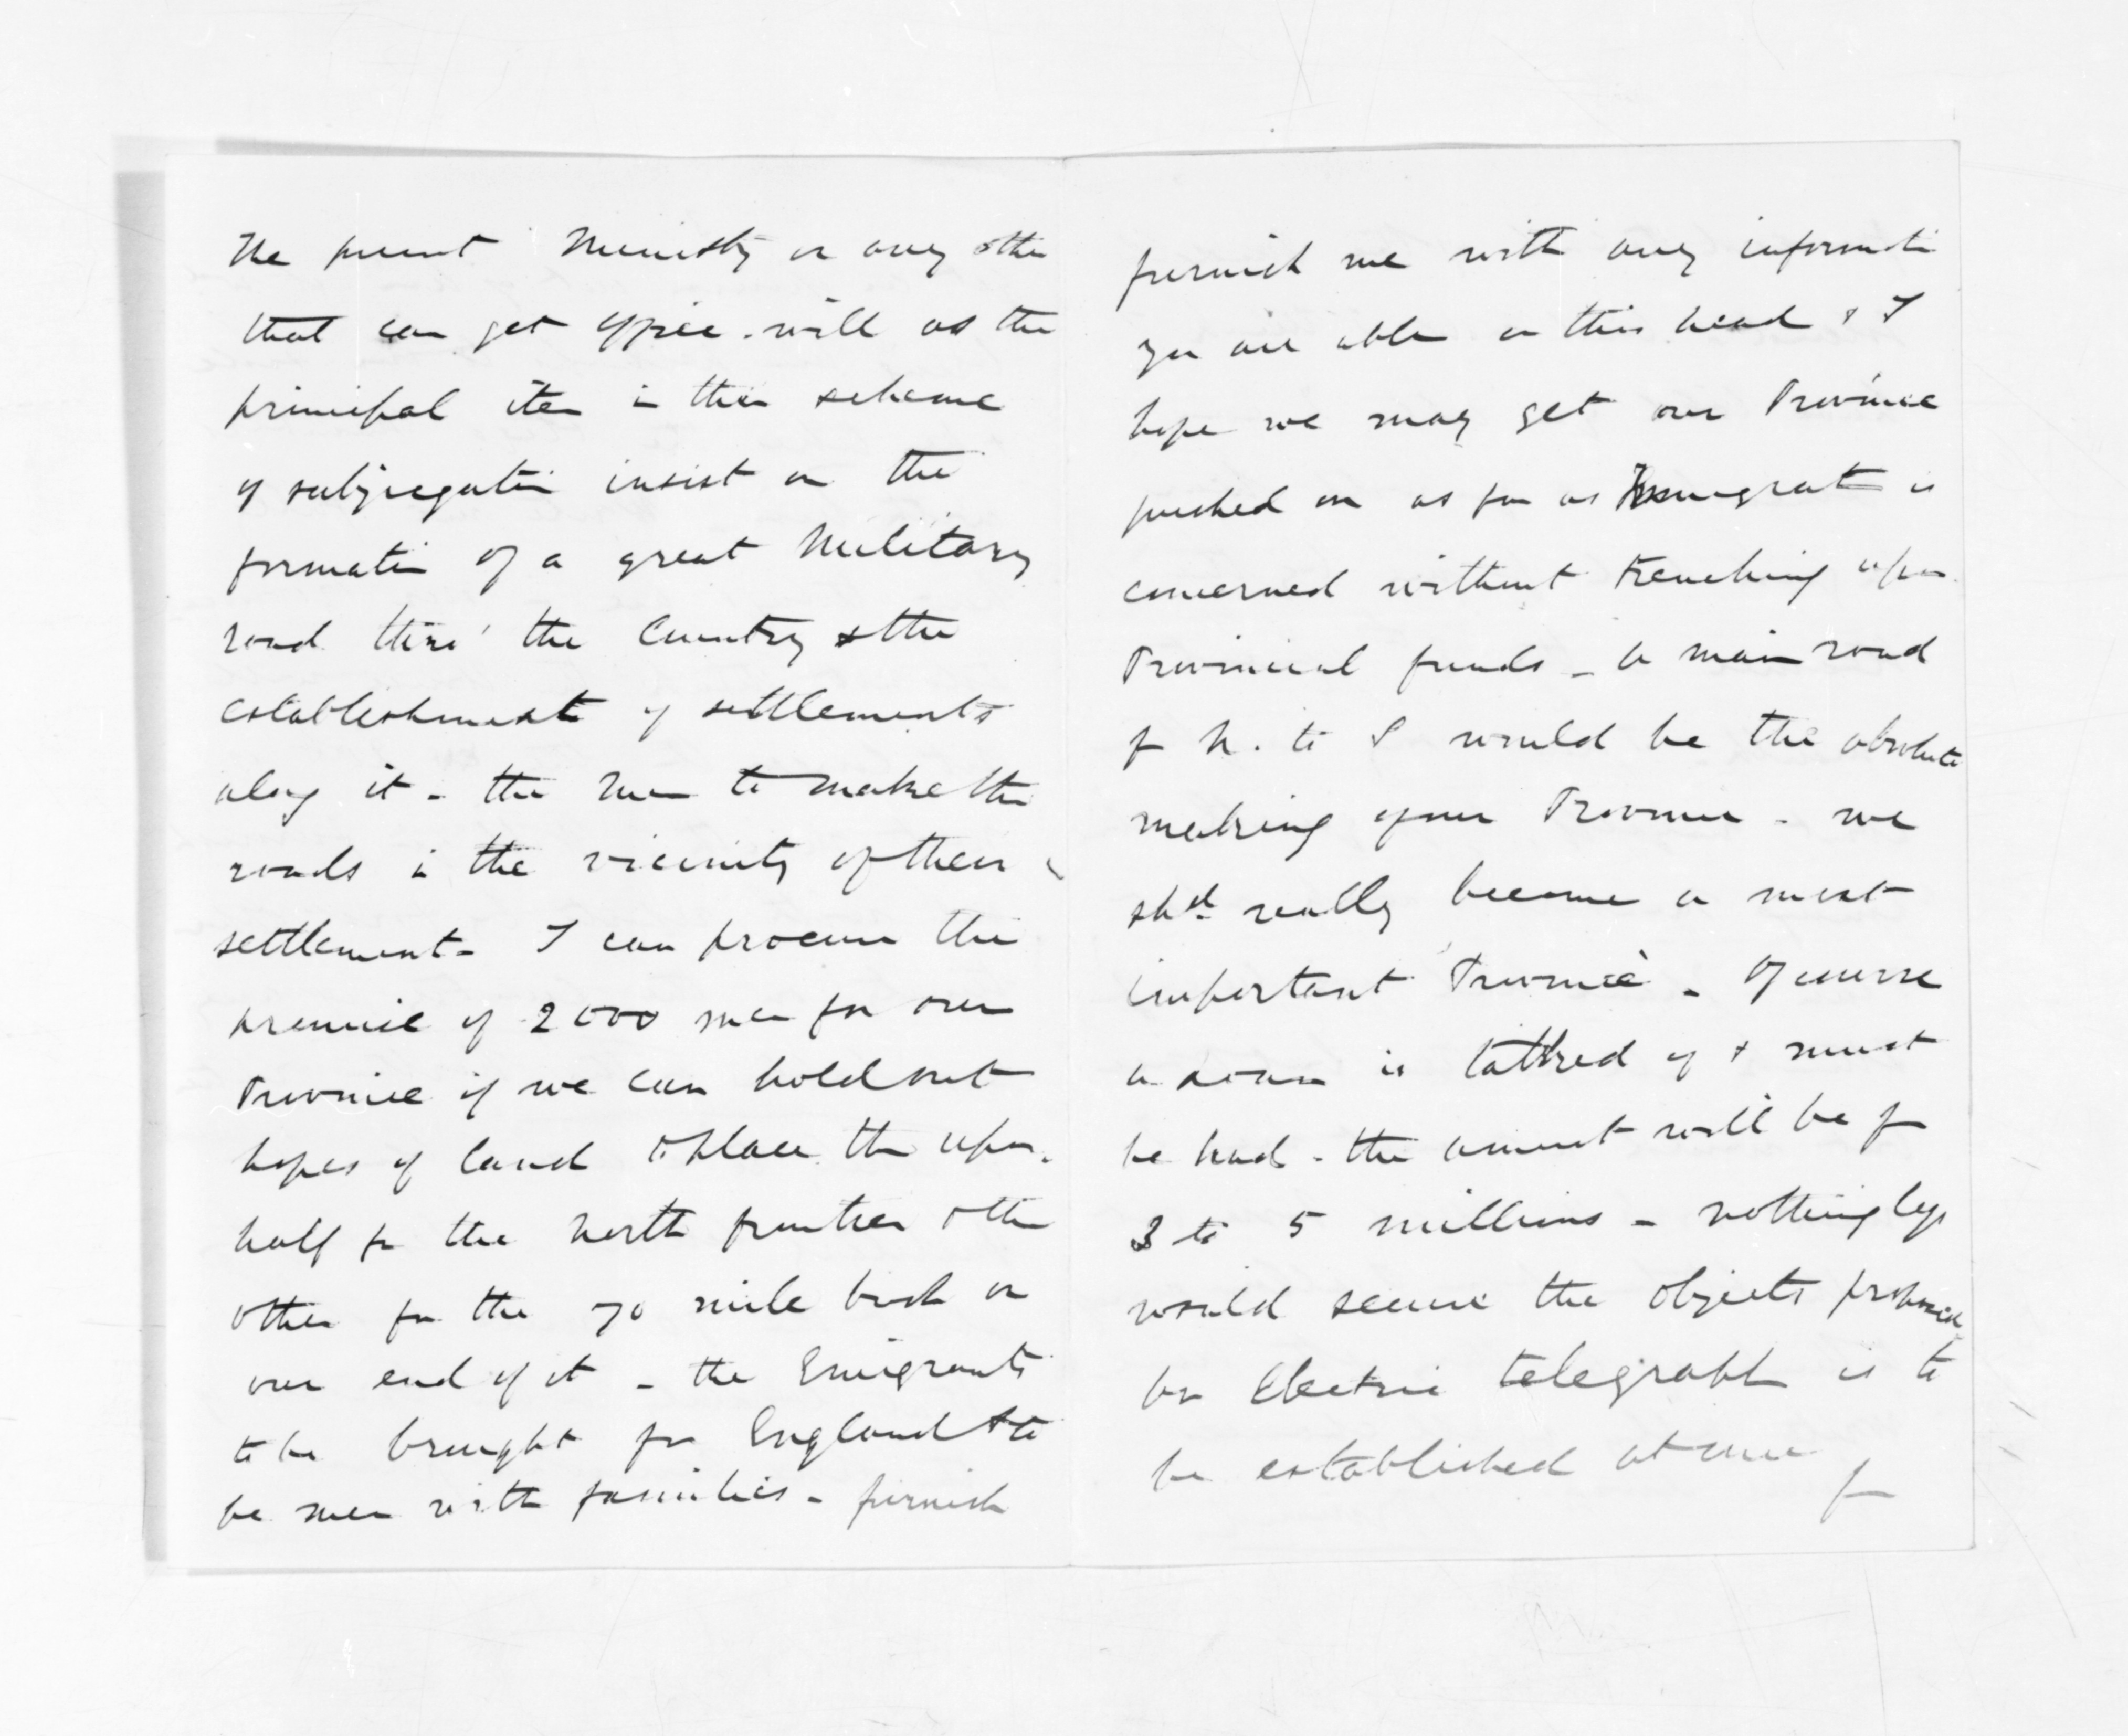 The present Ministry or any other
that can get office - will as the
principal item in their scheme
of subjugation insist on the
formation of a great Military
road thro' the Country & the
establishment of settlements
along it - the men to make the
roads in the vicinity of their
settlement - I can procure the
promise of 2000 men for our
Province if we can hold out
hopes of land to place them upon -
half for the North frontier & the
other for the 70 mile bush on
our end of it - the Emigrants
to be brought fm England & to
be men with families - furnish
furnish me with any informatn
you are able on this head & I
hope we may get our Province
pushed on as far as Immigratn is
concerned without trenching upon
Provincial funds - A main road
fm N. to S would be the absolute
making of our Province - we
shd really become a most
important Province - Of course
a loan is talked of & must
be had - the amount will be fm
3 to 5 millions - nothing less
would secure the objects proposed
An Electric telegraph is to
be established at once fm